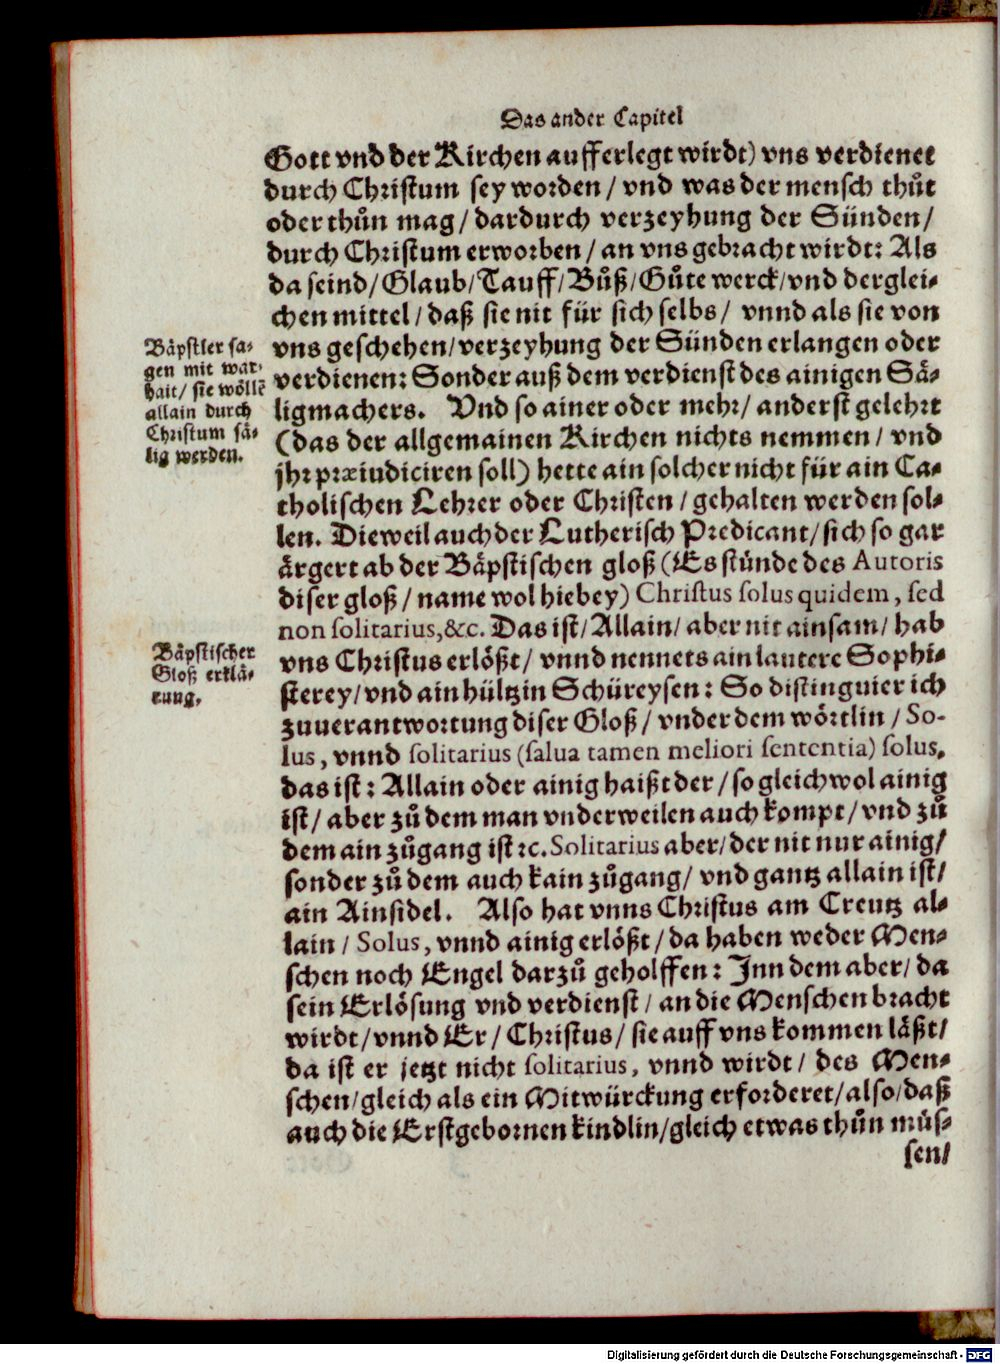 Das ander Capitel
Gott vnd der Kirchen aufferlegt wirdt) vns verdienet
durch Christum sey worden / vnd was der mensch thůt
oder thůn mag / dardurch verzeyhung der Sünden /
durch Christum erworben / an vns gebracht wirdt: Als
da seind / Glaub / Tauff / Bůß / Gůte werck / vnd derglei-
chen mittel / daß sie nit für sich selbs / vnnd als sie von
vns geschehen / verzeyhung der Sünden erlangen oder
verdienen: Sonder auß dem verdienst des ainigen Sä-
ligmachers. Vnd so ainer oder mehr / anderst gelehrt
(das der allgemainen Kirchen nichts nemmen / vnd
jhr præiudiciren soll) hette ain solcher nicht für ain Ca-
tholischen Lehrer oder Christen / gehalten werden sol-
len. Dieweil auch der Lutherisch Predicant / sich so gar
ärgert ab der Bäpstischen gloß (Es stünde des Autoris
diser gloß / name wol hiebey) Christus solus quidem, sed
non solitarius, &c. Das ist / Allain / aber nit ainsam / hab
vns Christus erlößt / vnnd nennets ain lautere Sophi-
sterey / vnd ain hültzin Schüreysen: So distinguier ich
zuuerantwortung diser Gloß / vnder dem wörtlin / So-
lus, vnnd solitarius (salua tamen meliori sententia) solus,
das ist: Allain oder ainig haißt der / so gleichwol ainig
ist / aber zů dem man vnderweilen auch kompt / vnd zů
dem ain zůgang ist ꝛc. Solitarius aber / der nit nur ainig /
sonder zů dem auch kain zůgang / vnd gantz allain ist /
ain Ainsidel. Also hat vnns Christus am Creutz al-
lain / Solus, vnnd ainig erlößt / da haben weder Men-
schen noch Engel darzů geholffen: Inn dem aber / da
sein Erlösung vnd verdienst / an die Menschen bracht
wirdt / vnnd Er / Christus / sie auff vns kommen läßt /
da ist er jetzt nicht solitarius, vnnd wirdt / des Men-
schen / gleich als ein Mitwürckung erforderet / also / daß
auch die Erstgebornen kindlin / gleich etwas thůn müs-
sen /
Bäpstler sa-
gen mit war-
hait / sie wöllẽ
allain durch
Christum sä-
lig werden.
Bäpstischer
Gloß erklä-
rung.
Digitalisierung gefördert durch die Deutsche Forschungsgemeinschaft - DFG